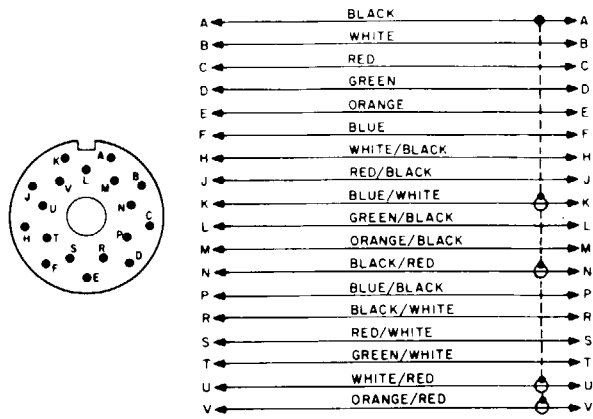 A BLACK A
B WHITE B
C RED C
D GREEN D
E ORANGE E
F BLUE F
H WHITE/BLACK H
J RED/BLACK J
K BLUE/WHITE K
L GREEN/BLACK L
M ORANGE/BLACK M
N BLACK/RED N
P BLUE/BLACK P
R BLACK/WHITE R
S RED/WHITE S
T GREEN/WHITE T
U WHITE/RED U
V ORANGE/RED V
K A
L
V M B
J
U N C
H T P
S R D
F E